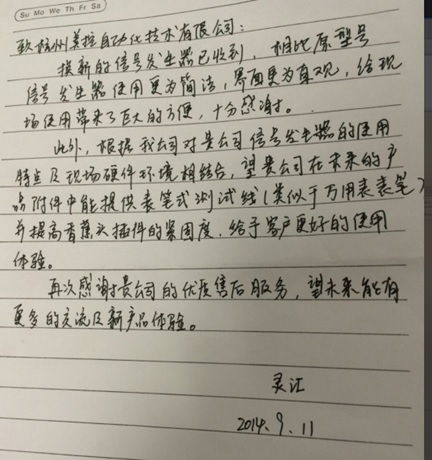 Su Mo We Th Fr Sa
致杭州美控自动化技术有限公司：
换新的信号发生器已收到，相比原型号
信号发生器使用更为简洁，界面更为直观，给现
场使用带来了巨大的方便，十分感谢。
此外，根据我公司对贵公司信号发生器的使用
特点及现场硬件环境相结合，望贵公司在未来的产
品附件中能提供表笔式测试线（类似于万用表表笔）
并提高香蕉头插件的紧固度，给予客户更好的使用
体验。
再次感谢贵公司的优质售后服务，望未来能有
更多的交流及新产品体验。
灵江
2014.9.11